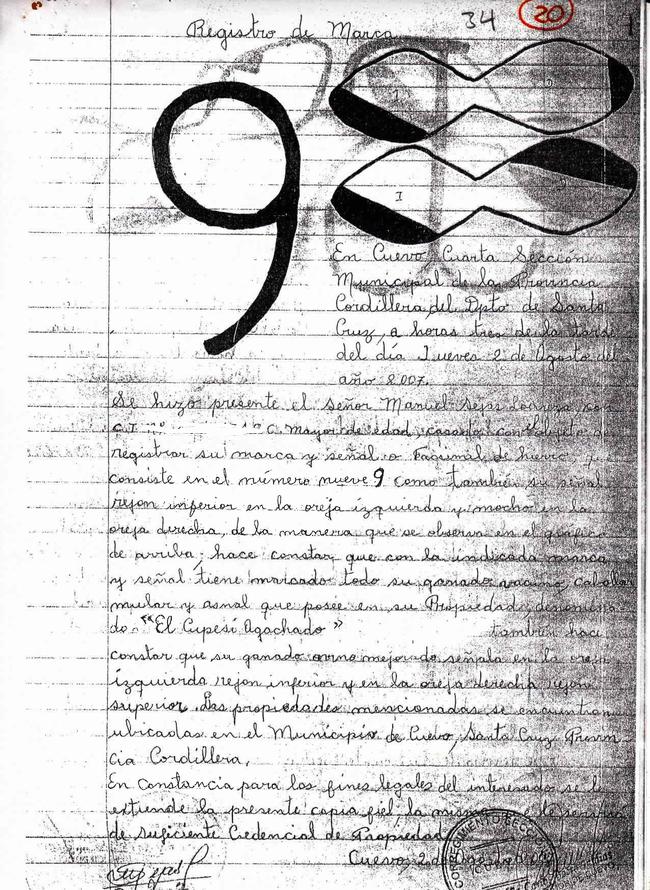 Registro de Marca
34
20
9
1
I
En Cuevo, Cuarta Sección
Municipal de la Provincia
Cordillera, del Dpto de Santa
Cruz, a horas tres de la tarde
del día Jueves 2 de Agosto del
año 2007.
Se hizo presente el señor Manuel
C.I. nº mayor de edad, casado, con objeto de
registrar su marca y señal o de hierro
consiste en el número nueve 9 como también su señal
rejon inferior en la oreja izquierda y mocho en la
oreja derecha, de la manera que se observa en el gráfico
de arriba; hace constar que con la indicada marca
y señal tiene marcado todo su ganado vacuno, caballar
mular y asnal que posee en su Propiedad denomina
do "El Cupesí Agachado" también hace
constar que su ganado mejorado señala en la oreja
izquierda rejon inferior y en la oreja derecha rejon
superior. Las propiedades mencionadas se encuentran
ubicadas en el Municipio de Cuevo, Santa Cruz Provin
cia Cordillera.
En Constancia para los fines legales del interesado se le
extiende la presente copia fiel, la misma
de suficiente Credencial de Propiedad
Cuevo, 2 de Agosto